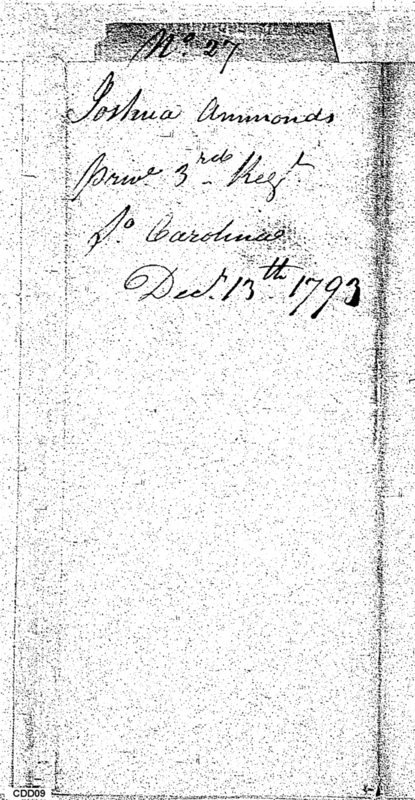 No. 27
Joshua Ammonds
priv.e 3rd Regt
So Carolina
Decr. 13th 1793
CDD09